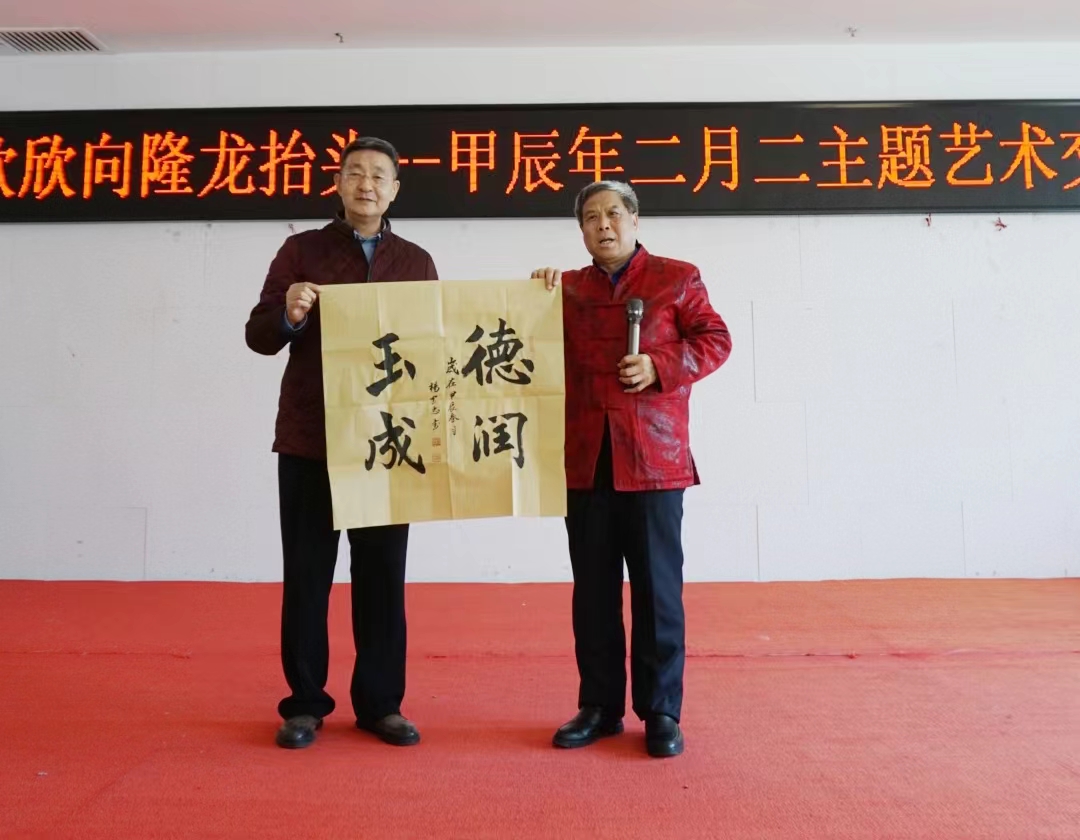 欣向隆龙抬头--甲辰年二月二主题艺术
德润
歲在甲辰春月
玉成